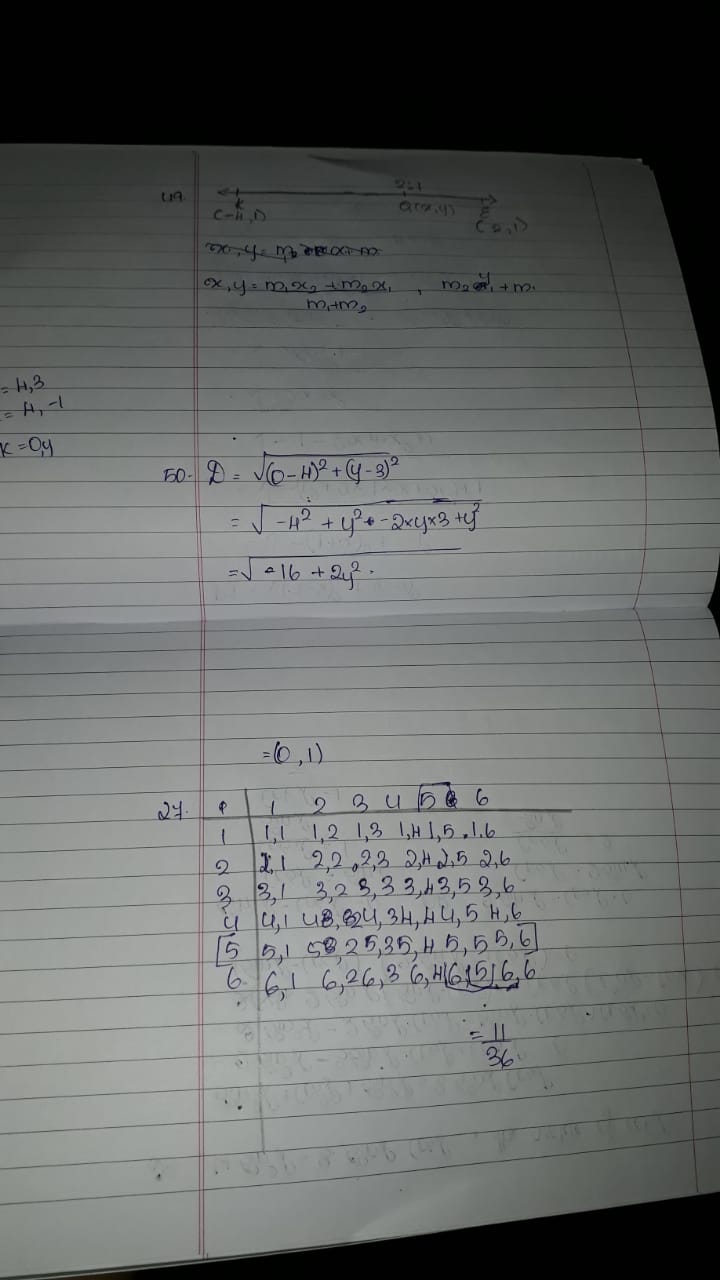 49. 2:1
Q(x,y)
(-4,1)
x,y = m₁x₂ + m₂x₁ , m₂y₁ + m₁
m₁+m₂
= 4,3
= 4,-1
K = 0,y
50. D = √(0-4)² + (y-3)²
= √-4² + y² - 2×y×3 + y²
= √-16 + 2y².
= (0,1)
27. 1 2 3 4 5 6
1 1,1 1,2 1,3 1,4 1,5 1,6
2 2,1 2,2 2,3 2,4 2,5 2,6
3 3,1 3,2 3,3 3,4 3,5 3,6
4 4,1 4,2 4,3 4,4 4,5 4,6
5 5,1 5,2 5,3 5,4 5,5 5,6
6. 6,1 6,2 6,3 6,4 6,5 6,6
= 11
36.